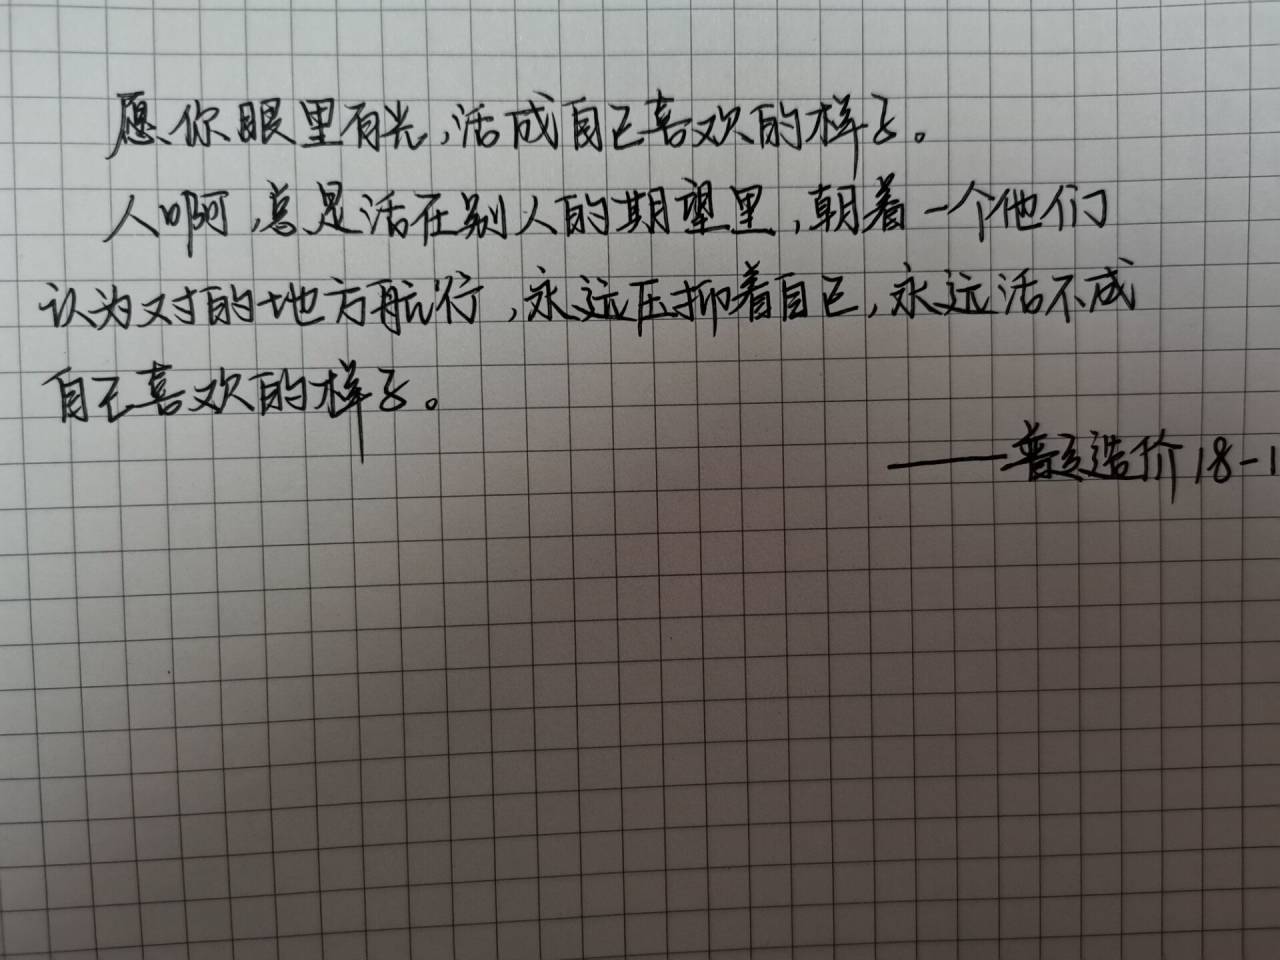 愿你眼里有光,活成自己喜欢的样子。
人啊,总是活在别人的期望里,朝着一个他们
认为对的地方航行,永远压抑着自己,永远活不成
自己喜欢的样子。
——普专造价18-1